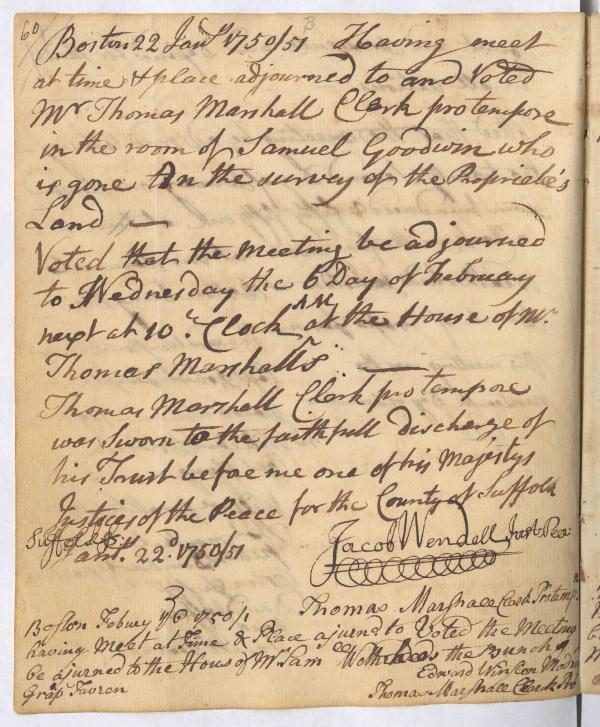 60
Boston 22 Janry 1750/51 Having meet
at time & place adjourned to and Voted
Mr Thomas Marshall Clerk protempore
in the room of Samuel Goodwin who
is gone On the survey of the Proprietee's
Land —
Voted that the meeting be adjourned
to Wednesday the 6 Day of February
next at 10 Clock AM at the House of Mr
Thomas Marshall's —
Thomas Marshall Clerk protempore
was Sworn to the faithfull discharge of
his Trust before me one of his Majestys
Justices of the Peace for the County of Suffolk
Suffolk Ss
Janry 22d 1750/51 Jacob Wendell Just Pea
Thomas Marshall Clerk Protemp
Boston Febury 6 1750/1
having Meet at Time & Place ajurned to Voted the Meeting
be ajurned to the Hous of Mr Sam the Bunch of
Graps Tavron Edward Winslow
Thomas Marshall Clerk Pro